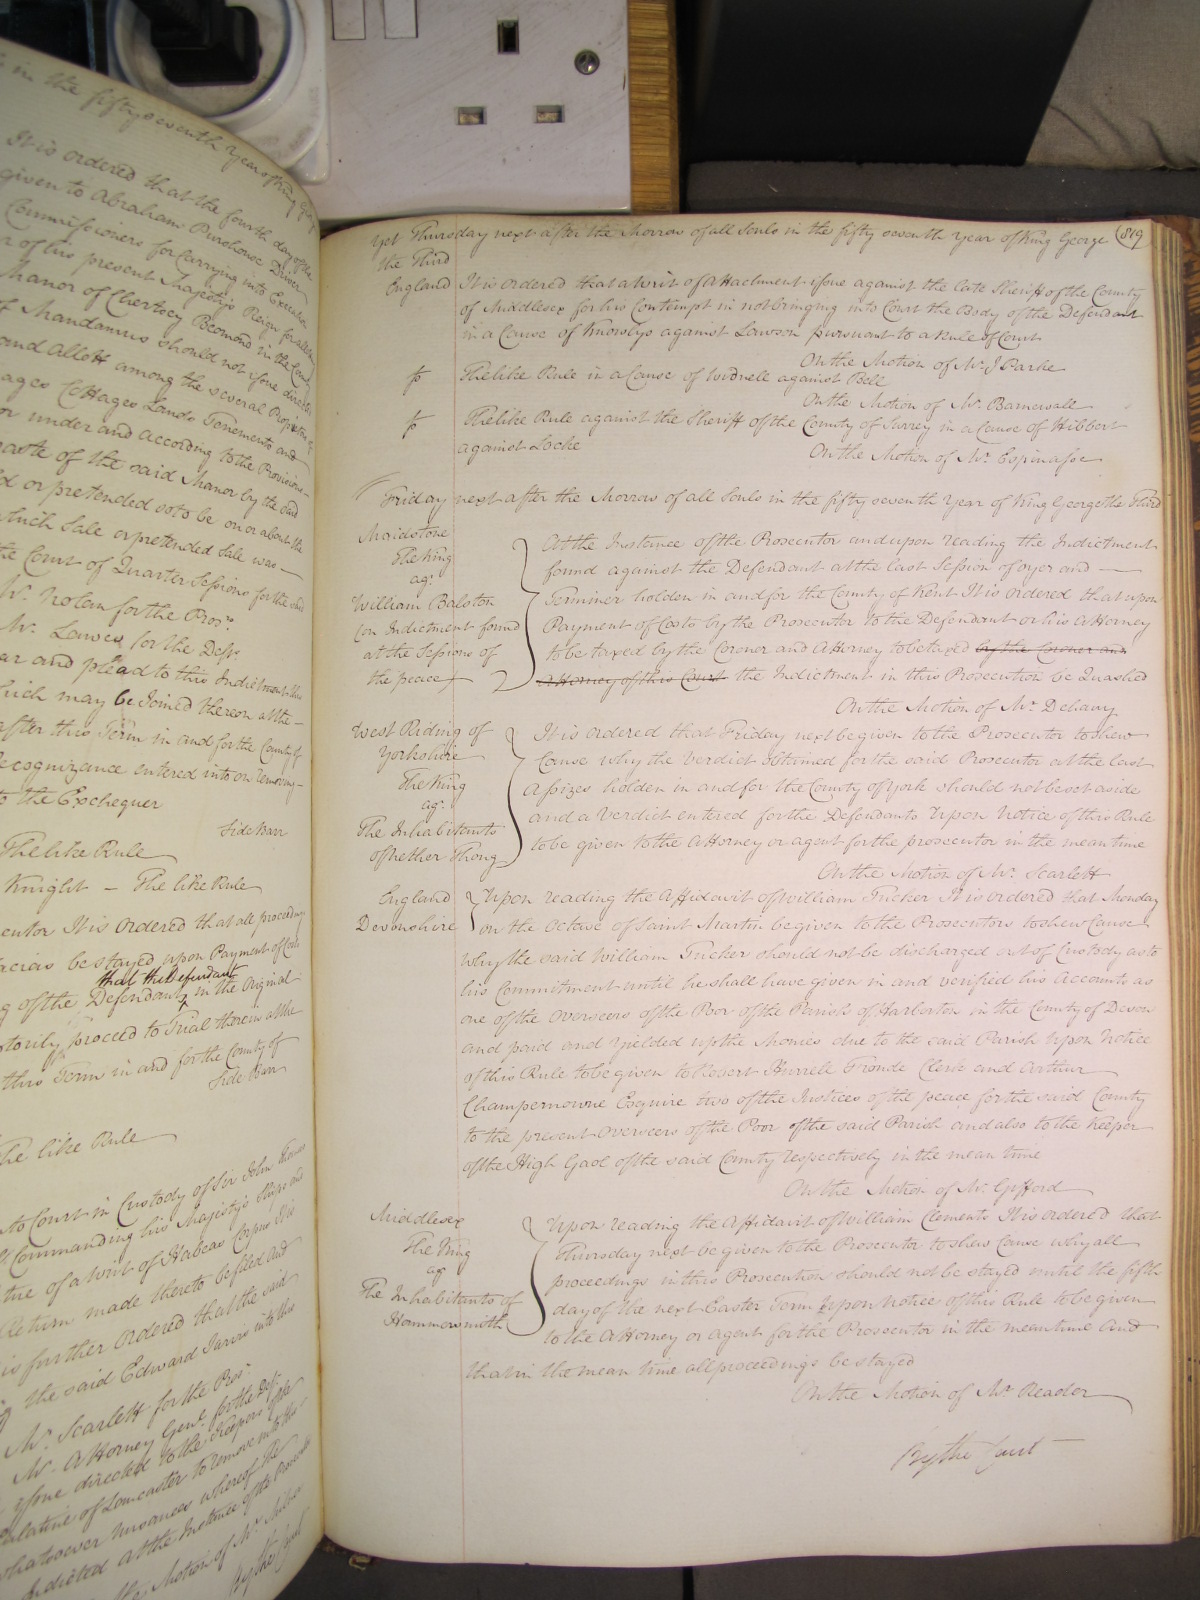 in the fifty seventh year of King George
It is ordered that the fourth day of the
given to Abraham Purshouse Driver
Commissioners for Carrying into Execution
r of his present Majestys Reign for
Manor of Chertsey Beomond in the County
f Mandamus should not issue directed
and Allott among the several Proprietors of
ages Cottages Lands Tenements and
or under and according to the Provisions
aste of the said Manor by the said
d or pretended so to be on or about the
which Sale or pretended Sale was
the Court of Quarter Sessions for the said
Mr. Nolan for the Pros.r
Mr. Lawes for the Def.t
ar and plead to this Indictment
hich may be Joined thereon at the
after this Term in and for the County of
Recognizance entered into on removing
to the Exchequer
Side Barr
The like Rule
Knight - The like Rule
entor It is ordered that all proceedings
facias be stayed upon Payment of Costs
that the Defendant
g of the Defendant in the Original
torily proceed to Trial therein at the
this Term in and for the County of
Side Barr
The like Rule
to Court in Custody of Sir John
Commanding his Majesty's Sheriff and
ture of a Writ of Habeas Corpus It is
Return made thereto be filed and
is further ordered that the said
the said Edward Jarvis into this
Mr. Scarlett for the Pros.r
Mr. Attorney Gen.l for the Def.t
issue directed to the Keepers of the
alatine of Lancaster to remove into this
whatsoever nuisances whereof the
Indicted at the Instance of the Prosecutor
the Motion of Mr.
By the Court
Yet Thursday next after the Morrow of all Souls in the fifty seventh year of King George (819
the Third
England It is ordered that a Writ of Attachment issue against the late Sheriff of the County
of Middlesex for his Contempt in not bringing into Court the Body of the Defendant
in a Cause of Knowlys against Lawson pursuant to a Rule of Court
On the Motion of Mr. J Parke
fo The like Rule in a Cause of Widnell against Bell
On the Motion of Mr. Barnewall
fo The like Rule against the Sheriff of the County of Surrey in a Cause of Hibbert
against Locke
On the Motion of Mr. Espinasse
Friday next after the Morrow of all Souls in the fifty seventh year of King George the Third
Maidstone
The King
ag.t
William Balston
(on Indictment found
at the Sessions of
the peace)
At the Instance of the Prosecutor and upon reading the Indictment
found against the Defendant at the last Session of oyer and
Terminer holden in and for the County of Kent It is ordered that upon
Payment of Costs by the Prosecutor to the Defendant or his Attorney
to be taxed by the Coroner and Attorney to be taxed by the Coroner and
Attorney of this Court the Indictment in this Prosecution be Quashed
On the Motion of Mr. Dehany
West Riding of
Yorkshire
The King
ag.t
The Inhabitants
of nether Thong
It is ordered that Friday next be given to the Prosecutor to shew
Cause why the Verdict obtained for the said Prosecutor at the last
Assizes holden in and for the County of York should not be set aside
and a Verdict entered for the Defendants Upon Notice of this Rule
to be given to the Attorney or agent for the prosecutor in the mean time
On the Motion of Mr. Scarlett
England
Devonshire
Upon reading the Affidavit of William Tucker It is ordered that Monday
on the Octave of Saint Martin be given to the Prosecutors to shew Cause
why the said William Tucker should not be discharged out of Custody as to
his Commitment until he shall have given in and verified his Accounts as
one of the Overseers of the Poor of the Parish of Harberton in the County of Devon
and paid and yielded up the Monies due to the said Parish Upon Notice
of this Rule to be given to Robert Hurrell Froude Clerk and Arthur
Champernowne Esquire two of the Justices of the peace for the said County
to the present Overseers of the Poor of the said Parish and also to the Keeper
of the High Gaol of the said County respectively in the mean time
On the Motion of Mr. Gifford
Middlesex
The King
ag.t
The Inhabitants of
Hammersmith
Upon reading the Affidavit of William Clements It is ordered that
Thursday next be given to the Prosecutor to shew Cause why all
proceedings in this Prosecution should not be stayed until the fifth
day of the next Easter Term Upon Notice of this Rule to be given
to the Attorney or agent for the Prosecutor in the mean time And
that in the mean time all proceedings be stayed
On the Motion of Mr. Reader
By the Court